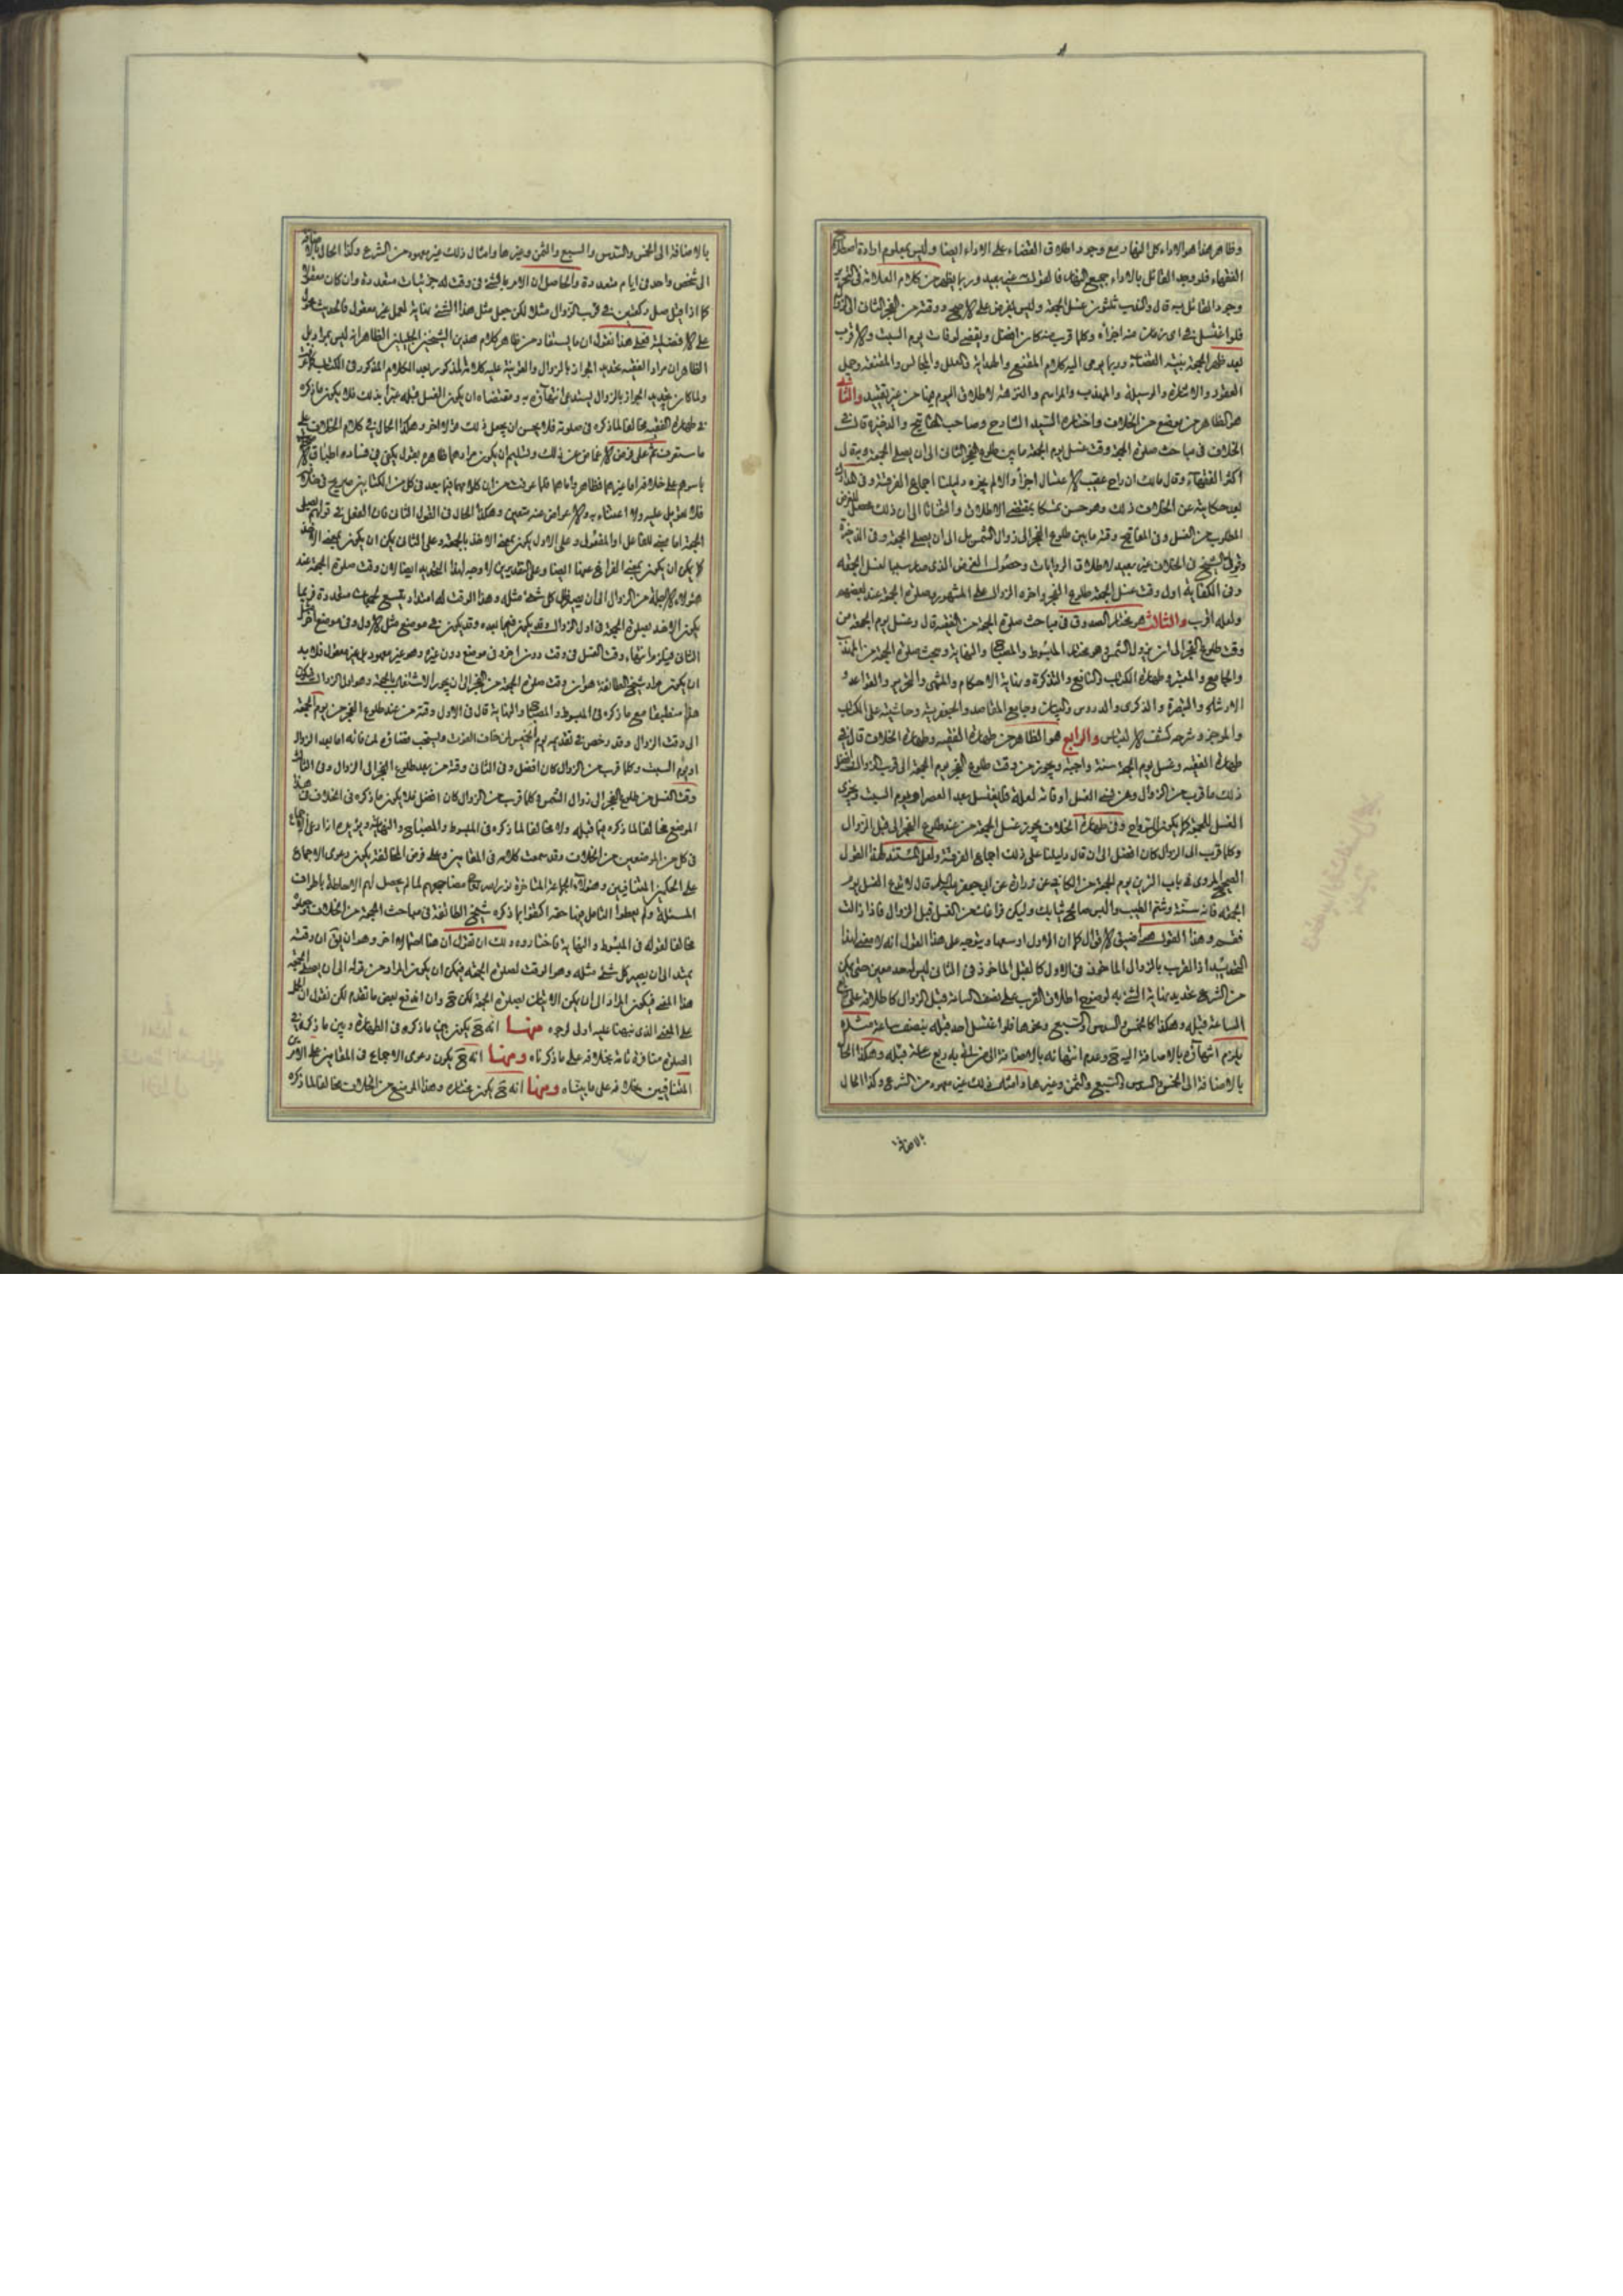 وظاهر هذا هو الاداء كل النهار مع وجود اطلاق القضاء على الاداء ايضا وليس بمعلوم ارادة اصطلاح
الفقهاء فلو وجد القائل بالاداء جميع النهار فالقول به غير بعيد وربما يظهر من كلام العلامة في التحرير
وجود القائل به قال والندب ثلثون غسل الجمعة وليس بفرض على الاصح ووقته من الفجر الثاني الى الزوال
فلو اغتسل في اي زمان منه اجزأه وكلما قرب منه كان افضل ويقضى لو فات يوم السبت والاقرب
بعد ظهر الجمعة بنية القضاء وربما يومى اليه كلام المقنع والهداية والعلل والمجالس والمقنعة وجمل
العقود والاشارة والوسيلة والمهذب والمراسم والنزهة لاطلاق اليوم فيها من غير تقييد والثاني
هو الظاهر من موضع من الخلاف واختاره السيد الشارح وصاحب المفاتيح والذخيرة قال في
الخلاف في مباحث صلوة الجمعة وقت غسل يوم الجمعة ما بين طلوع الفجر الثاني الى ان يصلى الجمعة وبه قال
اكثر الفقهاء وقال مالك ان راح عقيب الاغتسال اجزأ والا لم يجزه دليلنا اجماع الفرقة وفي
بعد حكايته عن الخلاف ذلك وهو حسن تمسكا بمقتضى الاطلاق والتفاتا الى ان ذلك محصل للغرض
المطلوب من الغسل وفي المفاتيح وقته ما بين طلوع الفجر الى زوال الشمس بل الى ان يصلى الجمعة وفي الذخيرة
وقول الشيخ في الخلاف غير بعيد لاطلاق الروايات وحصول الغرض الذي صار سببا لغسل الجمعة
وفي الكفاية اول وقت غسل الجمعة طلوع الفجر واخره الزوال على المشهور وصلوة الجمعة عند بعضهم
ولعله اقرب والثالث هو مختار الصدوق في مباحث صلوة الجمعة من الفقيه قال وغسل يوم الجمعة من
وقت طلوع الفجر الى ان تزول الشمس وهو مختار المبسوط والمصباح والنهاية وبحث صلوة الجمعة من المقنعة
والجامع والمعتبر وطهارة الكتاب والنافع والتذكرة ونهاية الاحكام والمنتهى والتحرير والقواعد و
الارشاد والتبصرة والذكرى والدروس والبيان وجامع المقاصد والجعفرية وحاشيته على الكتاب
والموجز وشرحه كشف الالتباس والرابع هو الظاهر من طهارة الفقيه وطهارة الخلاف قال في
طهارة الفقيه وغسل يوم الجمعة سنة واجبة ويجوز من وقت طلوع الفجر يوم الجمعة الى قرب الزوال وافضل
ذلك ما قرب من الزوال ومن نسى الغسل او فاته لعلة فليغتسل بعد العصر او يوم السبت ويجزى
الغسل للجمعة كما يكون للرواح وفي طهارة الخلاف يجوز غسل الجمعة من عند طلوع الفجر الى قبل الزوال
وكلما قرب الى الزوال كان افضل الى ان قال دليلنا على ذلك اجماع الفرقة ولعل المستند لهذا القول
الصحيح المروي في باب التزين يوم الجمعة من الكافي عن زرارة عن ابي جعفر عليه السلام قال لا تدع الغسل يوم
الجمعة فانه سنة وشم الطيب والبس صالح ثيابك وليكن فراغك من الغسل قبل الزوال فاذا زالت
فقم وهذا القول اضيق الاقوال كما ان الاول اوسعها ويتوجه على هذا القول انه لا معنى لهذا
التحديد اذ القرب بالزوال الماخوذ في الاول كالقبل الماخوذ في الثاني ليس له حد معين حتى يمكن
من الشرع تحديد نهاية الشئ به لوضوح اطلاق القرب على نصف الساعة قبل الزوال كاطلاقه على ربع
الساعة قبله وهكذا كالخمس والسدس والتسبيع ونحوها فلو اغتسل احد قبله بنصف ساعة مثلا
يلزم انتهاؤه بالاضافة اليه وعدم انتهائه بالاضافة الى من اتى به ربع ساعة قبله وهكذا الحال
بالاضافة الى الخمس والسدس والتسيع والثمن وغيرها وامثال ذلك غير معهود من الشرع وكذا الحال
بالاضافة
بالاضافة الى الخمس والسدس والسبع والثمن وغيرها وامثال ذلك غير معهود من الشرع وكذا الحال بالاضافة
الى شخص واحد في ايام متعددة والحاصل ان الامر بالشئ في وقت له جزئيات متعددة وان كان معقولا
كما اذا قيل صل ركعتين في قرب الزوال مثلا لكن جعل مثل هذا الشئ نهاية لعمل غير معقول فالحديث محمول
على الافضلية فعلى هذا نقول ان ما يستفاد من ظاهر كلام هذين الشيخين الجليلين الظاهر انه ليس بمراد بل
الظاهر ان مراد الفقيه تحديد الجواز بالزوال والقرينة عليه كلامه المذكور بعد الكلام المذكور في الكتاب
ولما كان تحديد الجواز بالزوال يستدعى انتهاؤه به ومقتضاه ان يكون الغسل قبله جزأ بذلك فلا يكون ما ذكره
في طهارة الفقيه مخالفا لما ذكره في صلوته فلا يحسن ان يجعل ذلك قولا اخر وهكذا الحال في كلام الخلاف على
ما ستعرف ثم على فرض الاغماض عن ذلك وتسليم ان يكون مرادهما ظاهره نقول يكفى في فساده اطباق
باسرهم على خلافه اما غيرهما فظاهر واما هما فلما عرفت من ان كلامهما فيما بعد في كل من الكتابين صريح في خلافه
فلا تعويل عليه ولا اعتناء به والاعراض عنه متعين وهكذا الحال في القول الثاني فان الفعل في قولهم يصلى
الجمعة اما مبنى للفاعل او المفعول وعلى الاول يكون بمعنى الاخذ بالجمعة وعلى الثاني يمكن ان يكون بمعنى الاخذ
كما يمكن ان يكون بمعنى الفراغ عنها ايضا وعلى التقديرين لا وجه لهذا التحديد ايضا لان وقت صلوة الجمعة عند
هؤلاء الاجلة من الزوال الى ان يصير ظل كل شئ مثله وهذا الوقت له امتداد يتسع لجمعات متعددة فربما
يكون الاخذ بصلوة الجمعة في اول الزوال وقد يكون فيما بعده وقد يكون في موضع مثل الاول وفي موضع اخر مثل
الثاني فيلزم انتهاء وقت الغسل في وقت دون اخر وفي موضع دون غيره وهو غير معهود بل غير معقول فلا بد
ان يكون مراد شيخ الطائفة هو ان وقت صلوة الجمعة من الفجر الى ان يجوز الاشتغال بالجمعة وهو اول الزوال فيكون
هذا منطبقا مع ما ذكره في المبسوط والمصباح والنهاية قال في الاول وقته من عند طلوع الفجر من يوم الجمعة
الى وقت الزوال وقد رخص في تقديمه يوم الخميس لمن خاف الفوت ويستحب قضاؤه لمن فاته اما بعد الزوال
او يوم السبت وكلما قرب من الزوال كان افضل وفي الثاني وقته من بعد طلوع الفجر الى الزوال وفي الثالث
وقت الغسل من طلوع الفجر الى زوال الشمس وكلما قرب من الزوال كان افضل فلا يكون ما ذكره في الخلاف في هذا
الموضع مخالفا لما ذكره فيما قبله ولا مخالفا لما ذكره في المبسوط والمصباح والنهاية ويؤيده انه ادعى الاجماع
في كل من الموضعين من الخلاف وقد سمعت كلامه في المقامين وعلى فرض المخالفة يكون دعوى الاجماع
على الحكمين المتنافيين وهؤلاء الجماعة المتاخرة نور الله مضاجعهم لما لم يحصل لهم الاحاطة باطراف
المسئلة ولم يعطوا التامل فيها حقه اكتفوا بما ذكره شيخ الطائفة في مباحث الجمعة من الخلاف وجعلوه
مخالفا لقوله في المبسوط والنهاية فاختاروه ولك ان تقول ان هنا احتمالا اخر وهو ان يق ان وقته
يمتد الى ان يصير كل شئ مثله وهو الوقت لصلوة الجمعة فيمكن ان يكون المراد من قوله الى ان يصلى الجمعة
هذا المعنى فيكون المراد الى ان يمكن الاتيان بصلوة الجمعة لكن ح وان اندفع بعض ما تقدم لكن نقول ان الحمل
على المعنى الذي نبهنا عليه اولى لوجوه منها انه ح يكون بين ما ذكره في الطهارة وبين ما ذكره في
الصلوة منافرة تامة بخلافه على ما ذكرناه ومنها انه ح يكون دعوى الاجماع في المقامين على الامرين
المتنافيين بخلافه على ما بيناه ومنها انه ح يكون مختاره وهذا الموضع من الخلاف مخالفا لما ذكره